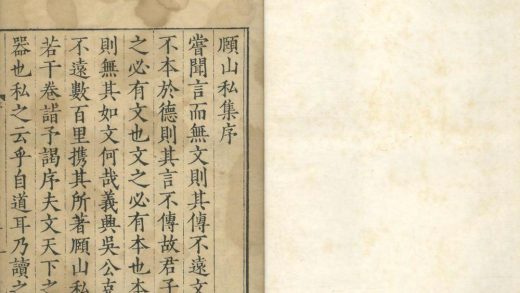 頤山私集序
嘗聞言而無文則其傳不遠文
不本於德則其言不傳故君子
之必有文也文之必有本也本
則無其如文何哉義興吳公
不遠數百里携其所著頤山私
若干卷詣予謁序夫文天下之
器也私之云乎自道耳乃讀之